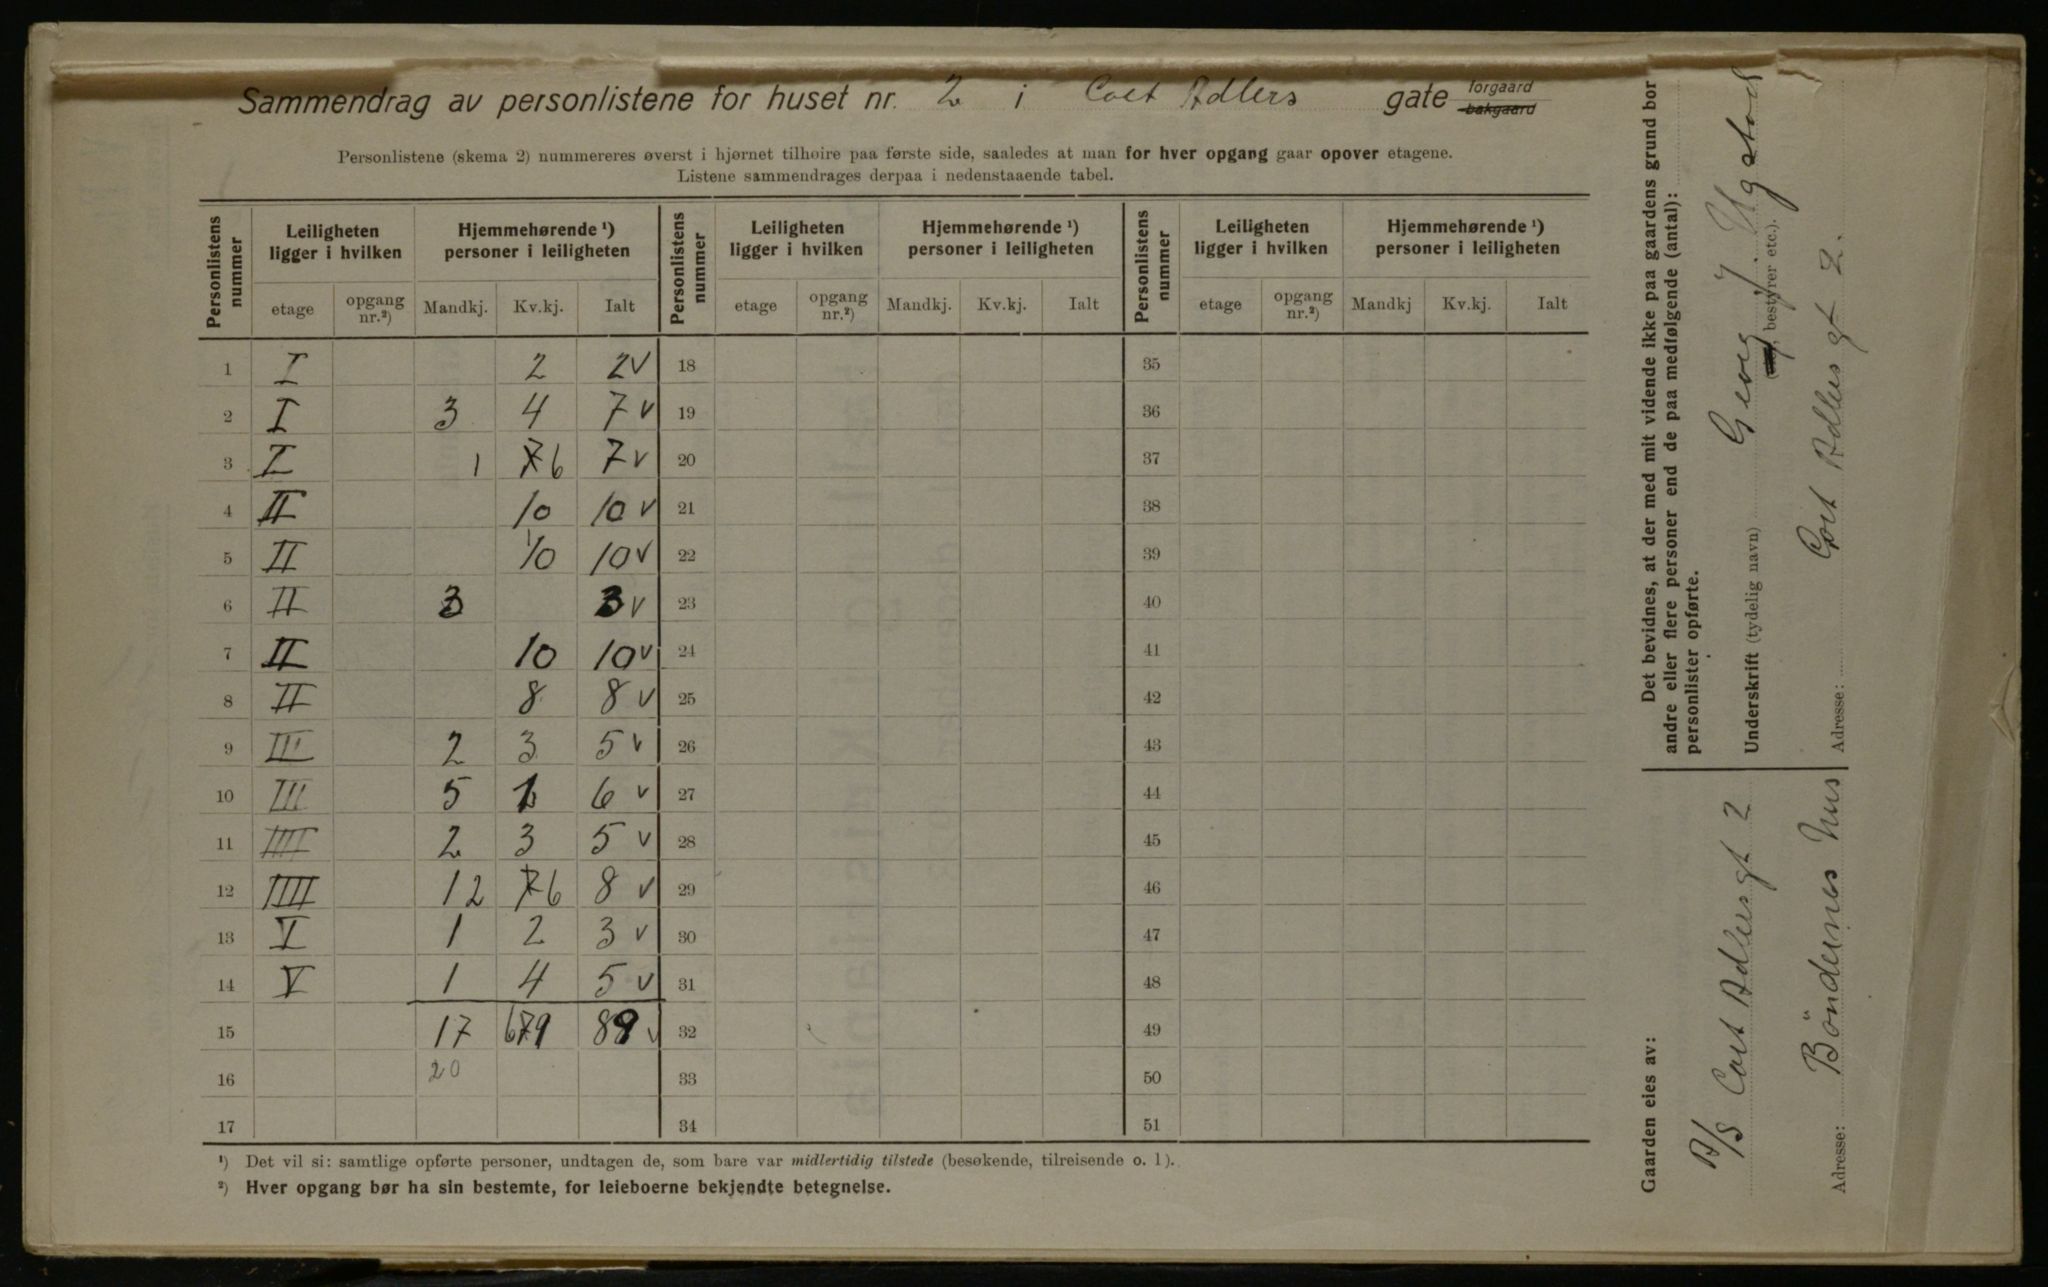 Sammendrag av personlistene for huset nr. 2 i Cort Adlers gate forgaard bakgaard
Personlistene (skema 2) nummereres øverst i hjørnet tilhøire paa første side, saaledes at man for hver opgang gaar opover etagene.
Listene sammendrages derpaa i nedenstaaende tabel.
Personlistens nummer | Leiligheten ligger i hvilken | Hjemmehørende ¹) personer i leiligheten | Personlistens nummer | Leiligheten ligger i hvilken | Hjemmehørende ¹) personer i leiligheten | Personlistens nummer | Leiligheten ligger i hvilken | Hjemmehørende ¹) personer i leiligheten
etage | opgang nr.²) | Mandkj. | Kv.kj. | Ialt | etage | opgang nr.²) | Mandkj. | Kv.kj. | Ialt | etage | opgang nr.²) | Mandkj | Kv.kj. | Ialt
1 I 2 2 v 18 35
2 I 3 4 7 v 19 36
3 I 1 7 6 7 v 20 37
4 II 10 10 v 21 38
5 II 10 10 v 22 39
6 II 3 3 v 23 40
7 II 10 10 v 24 41
8 II 8 8 v 25 42
9 III 2 3 5 v 26 43
10 III 5 1 6 v 27 44
11 IIII 2 3 5 v 28 45
12 IIII 1 2 7 6 8 v 29 46
13 V 1 2 3 v 30 47
14 V 1 4 5 v 31 48
15 17 89 v 32 49
16 20 33 50
17 34 51
¹) Det vil si: samtlige opførte personer, undtagen de, som bare var midlertidig tilstede (besøkende, tilreisende o. l).
²) Hver opgang bør ha sin bestemte, for leieboerne bekjendte betegnelse.
Det bevidnes, at der med mit vidende ikke paa gaardens grund bor
andre eller flere personer end de paa medfølgende (antal):
personlister opførte.
Underskrift (tydelig navn) Georg J.
bestyrer etc.).
Adresse: Cort Adlers gt 2.
Gaarden eies av:
A/S Cort Adlersgt 2
Adresse: Böndernes Hus